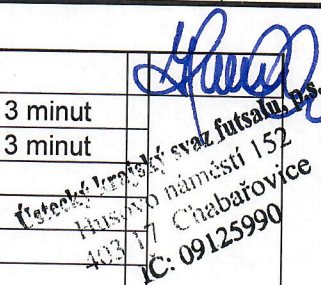 3 minut
3 minut
Ústecký krajský svaz futsalu, p.s.
Husovo náměstí 152
403 17 Chabařovice
IČ: 09125990